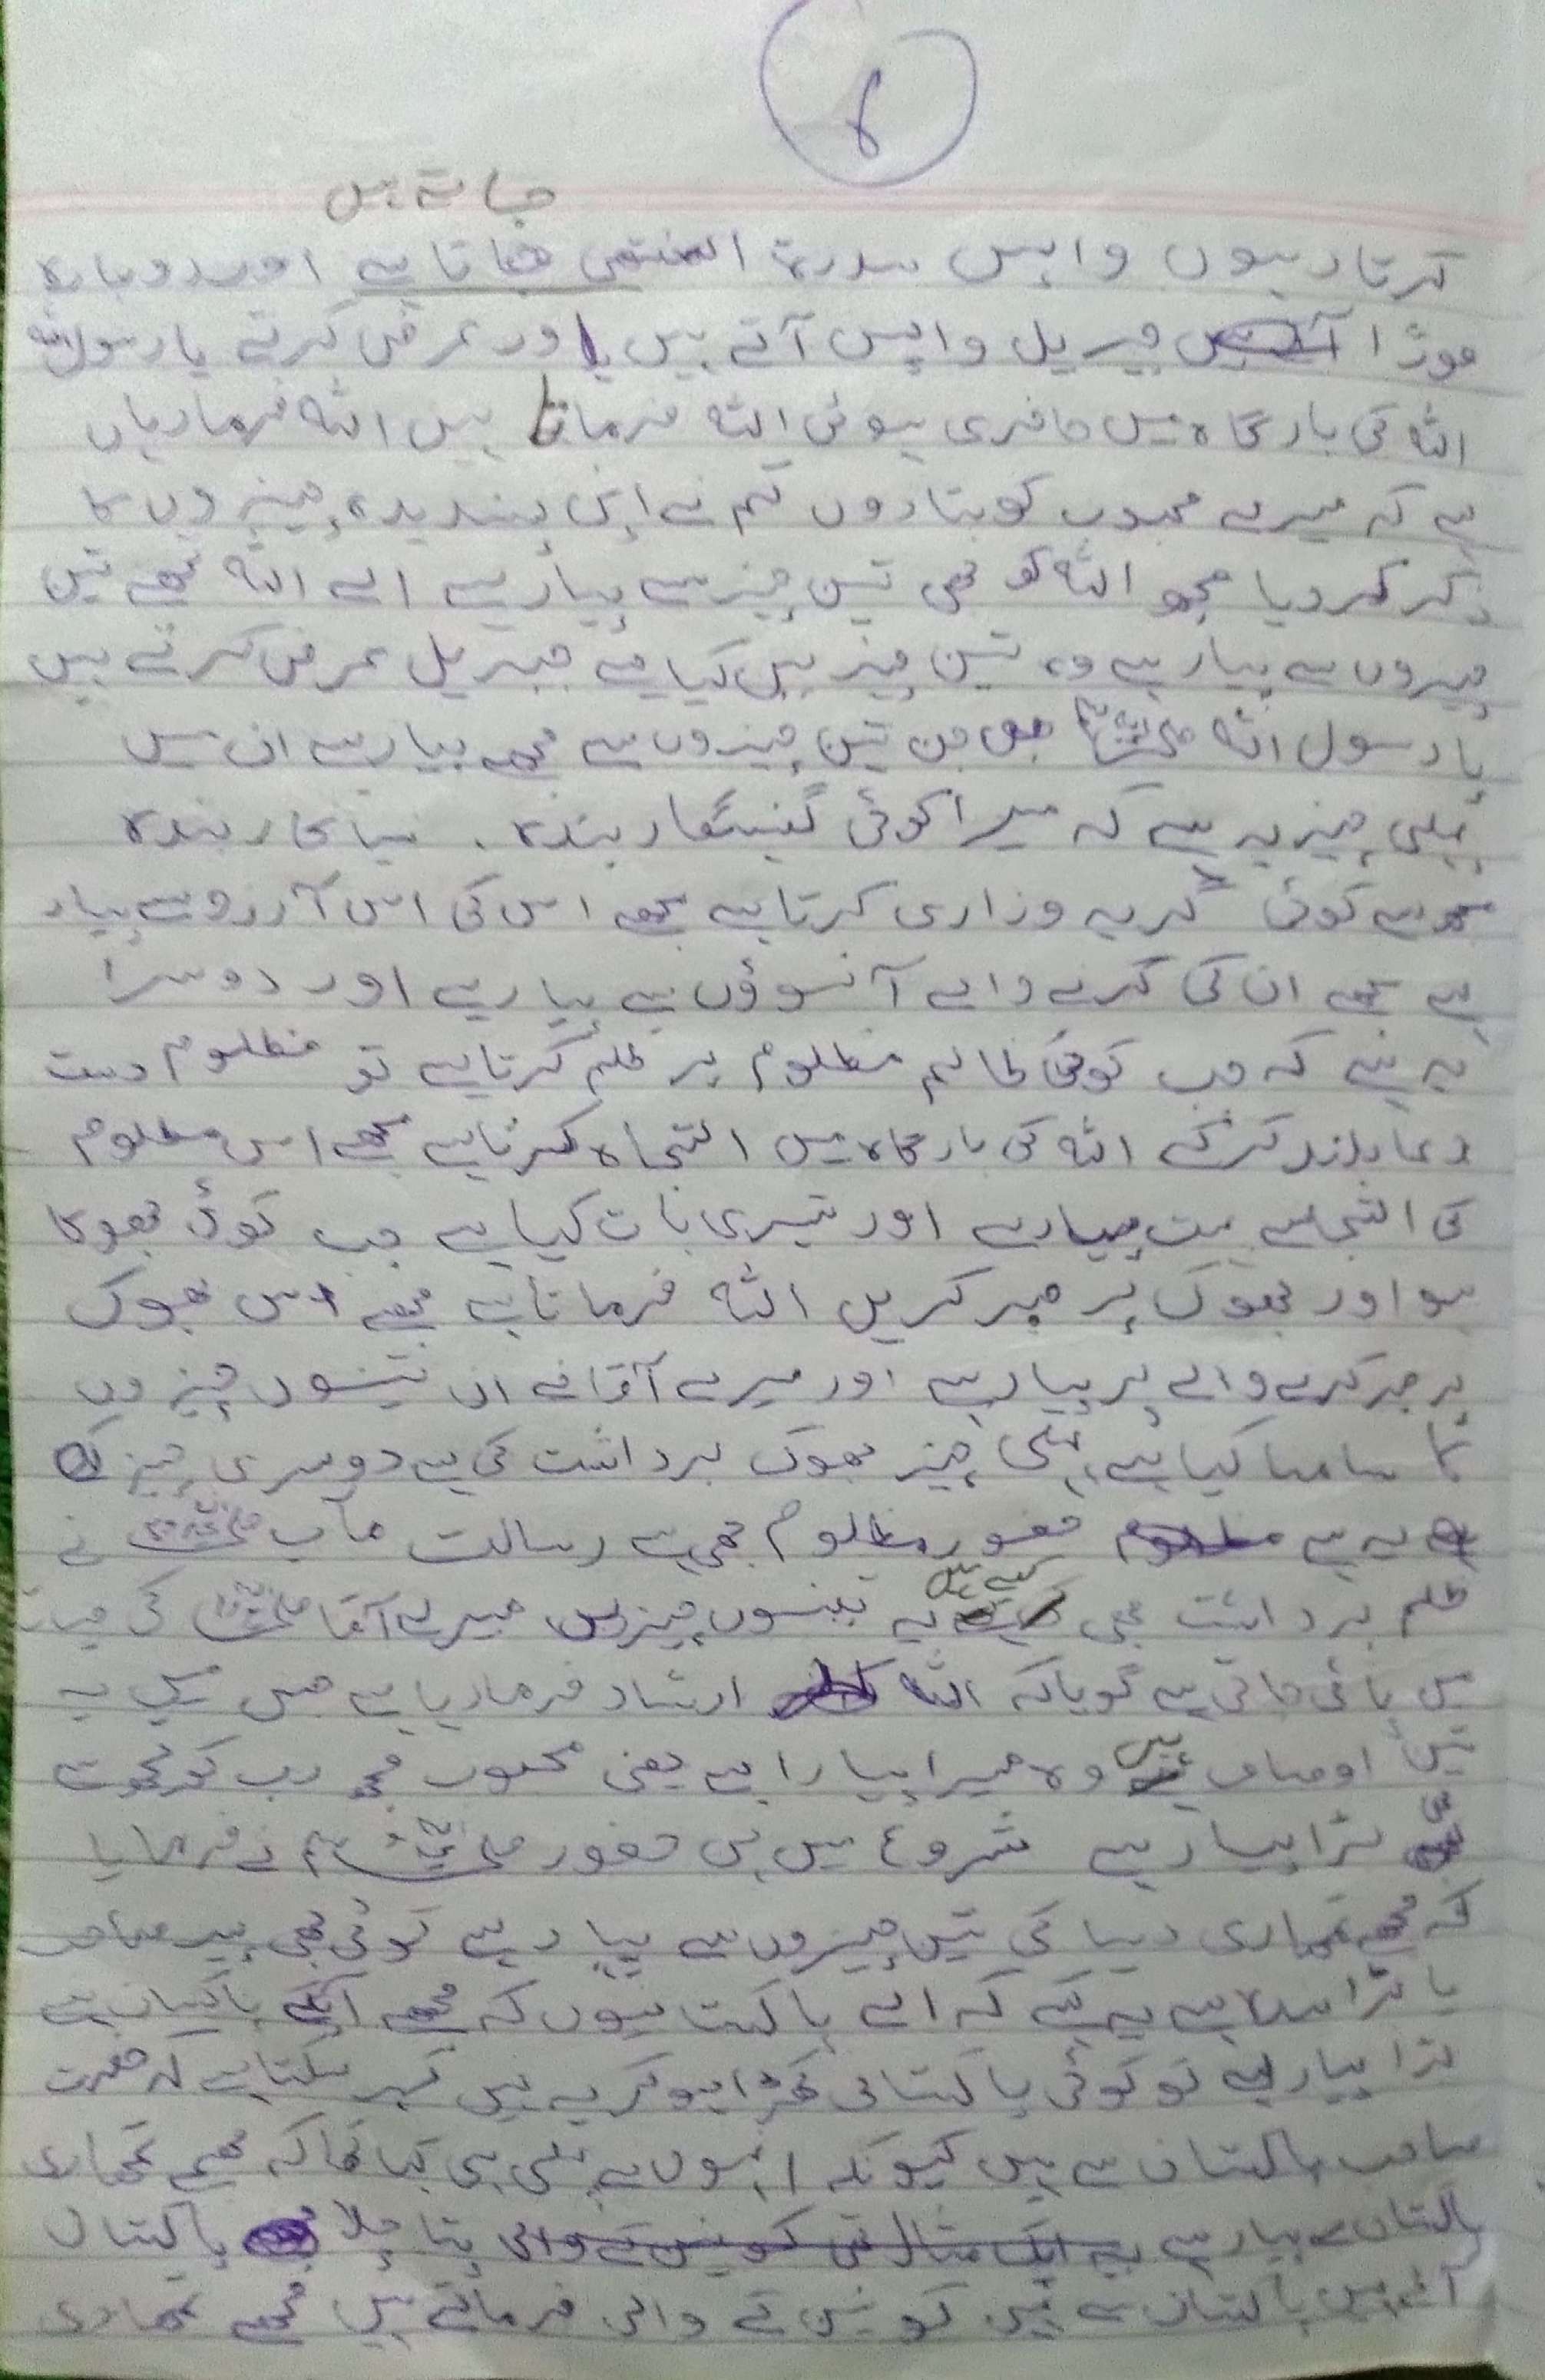 ۸
جاتے ہیں
کرتا ہوں واپس سدرۃ المنتھی جاتا ہے اور دوبارہ
فوڑا جبریل واپس آتے ہیں اور عرض کرتے یا رسول اللہ
اللہ کی بارگاہ میں حاضری ہوئی اللہ فرماتا ہیں اللہ فرمارہاں
ہے کہ میرے محبوب کو بتا دوں تم نے اپنی پسندیدہ چیزوں کا
ذکر کر دیا مجھ اللہ کو بھی تین چیز سے پیار ہے اے اللہ تجھے تین
چیزوں سے پیار ہے وہ تین چیزیں کیا ہے جبریل عرض کرتے ہیں
یا رسول اللہ ﷺ جن تین چیزوں سے مجھے پیار ہے ان میں
پہلی چیز یہ ہے کہ میرا کوئی گنہگار بندہ . سیاکار بندہ
مجھ سے کوئی گریہ وزاری کرتا ہے مجھے اس کی اس آرزو سے پیار
ہے مجھے ان کی گرنے والے آنسوؤں سے پیار ہے اور دوسرا
یہ ہے کہ جب کوئی ظالم مظلوم پر ظلم کرتا ہے تو مظلوم دست
دعا بلند کرکے اللہ کی بارگاہ میں التجاہ کرتا ہے مجھے اس مظلوم
کی التجا سے بہت پیار ہے اور تیسری بات کیا ہے جب کوئی بھوکا
ہو اور بھوک پر صبر کریں اللہ فرماتا ہے مجھے اس بھوک
پر صبر کرنے والے پر پیار ہے اور میرے آقا نے ان تینوں چیزوں
کا سامنا کیا ہے، پہلی چیز بھوک برداشت کی ہے دوسری چیز
یہ ہے مظلوم حضور مظلوم بھی ہے رسالت مآب ﷺ نے
ظلم برداشت بھی کیے ہیں یہ تینوں چیزیں میرے آقا ﷺ کی حیات
میں پائی جاتی ہے گویا کہ اللہ ارشاد فرما دیا ہے جس میں یہ
تین اوصاف ہیں وہ میرا پیارا ہے یعنی محبوب مجھ رب کو تجھ سے
بھی بڑا پیار ہے شروع میں ہی حضور صلی اللہ علیہ وسلم نے فرمایا
کہ مجھے تمھاری دنیا کی تین چیزوں سے پیار ہے کوئی بھی پیر صاحب
یا بڑا بندہ ہے یہ کہے کہ اے پاکستانیوں کہ مجھے آپکے پاکستان سے
بڑا پیار ہے تو کوئی پاکستانی کھڑا ہو کر یہ نہیں کہہ سکتا ہے کہ حضرت
صاحب پاکستان سے ہیں کیونکہ انہوں نے پہلے ہی کہا تھا کہ مجھے تمھاری
پاکستان سے پیار ہے یہ ایک مثال تھی کونین کے والی پتا چلا پاکستان
آئے ہیں پاکستان سے نہیں کونین کے والی فرماتے ہیں مجھے تمھاری